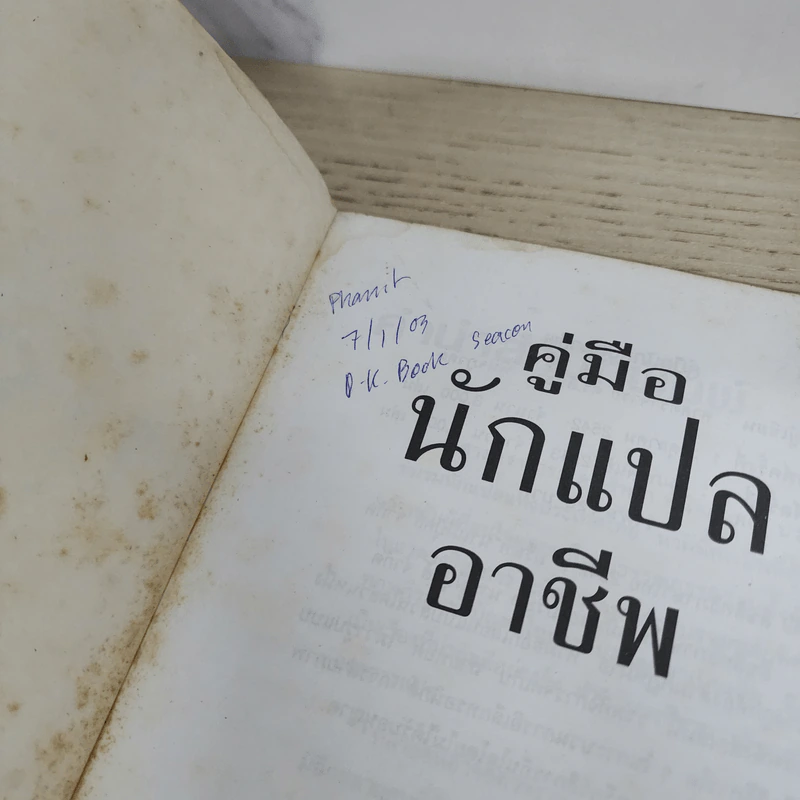 Phanit
7/1/03
D.K. Book Seacon
คู่มือ
นักแปล
อาชีพ